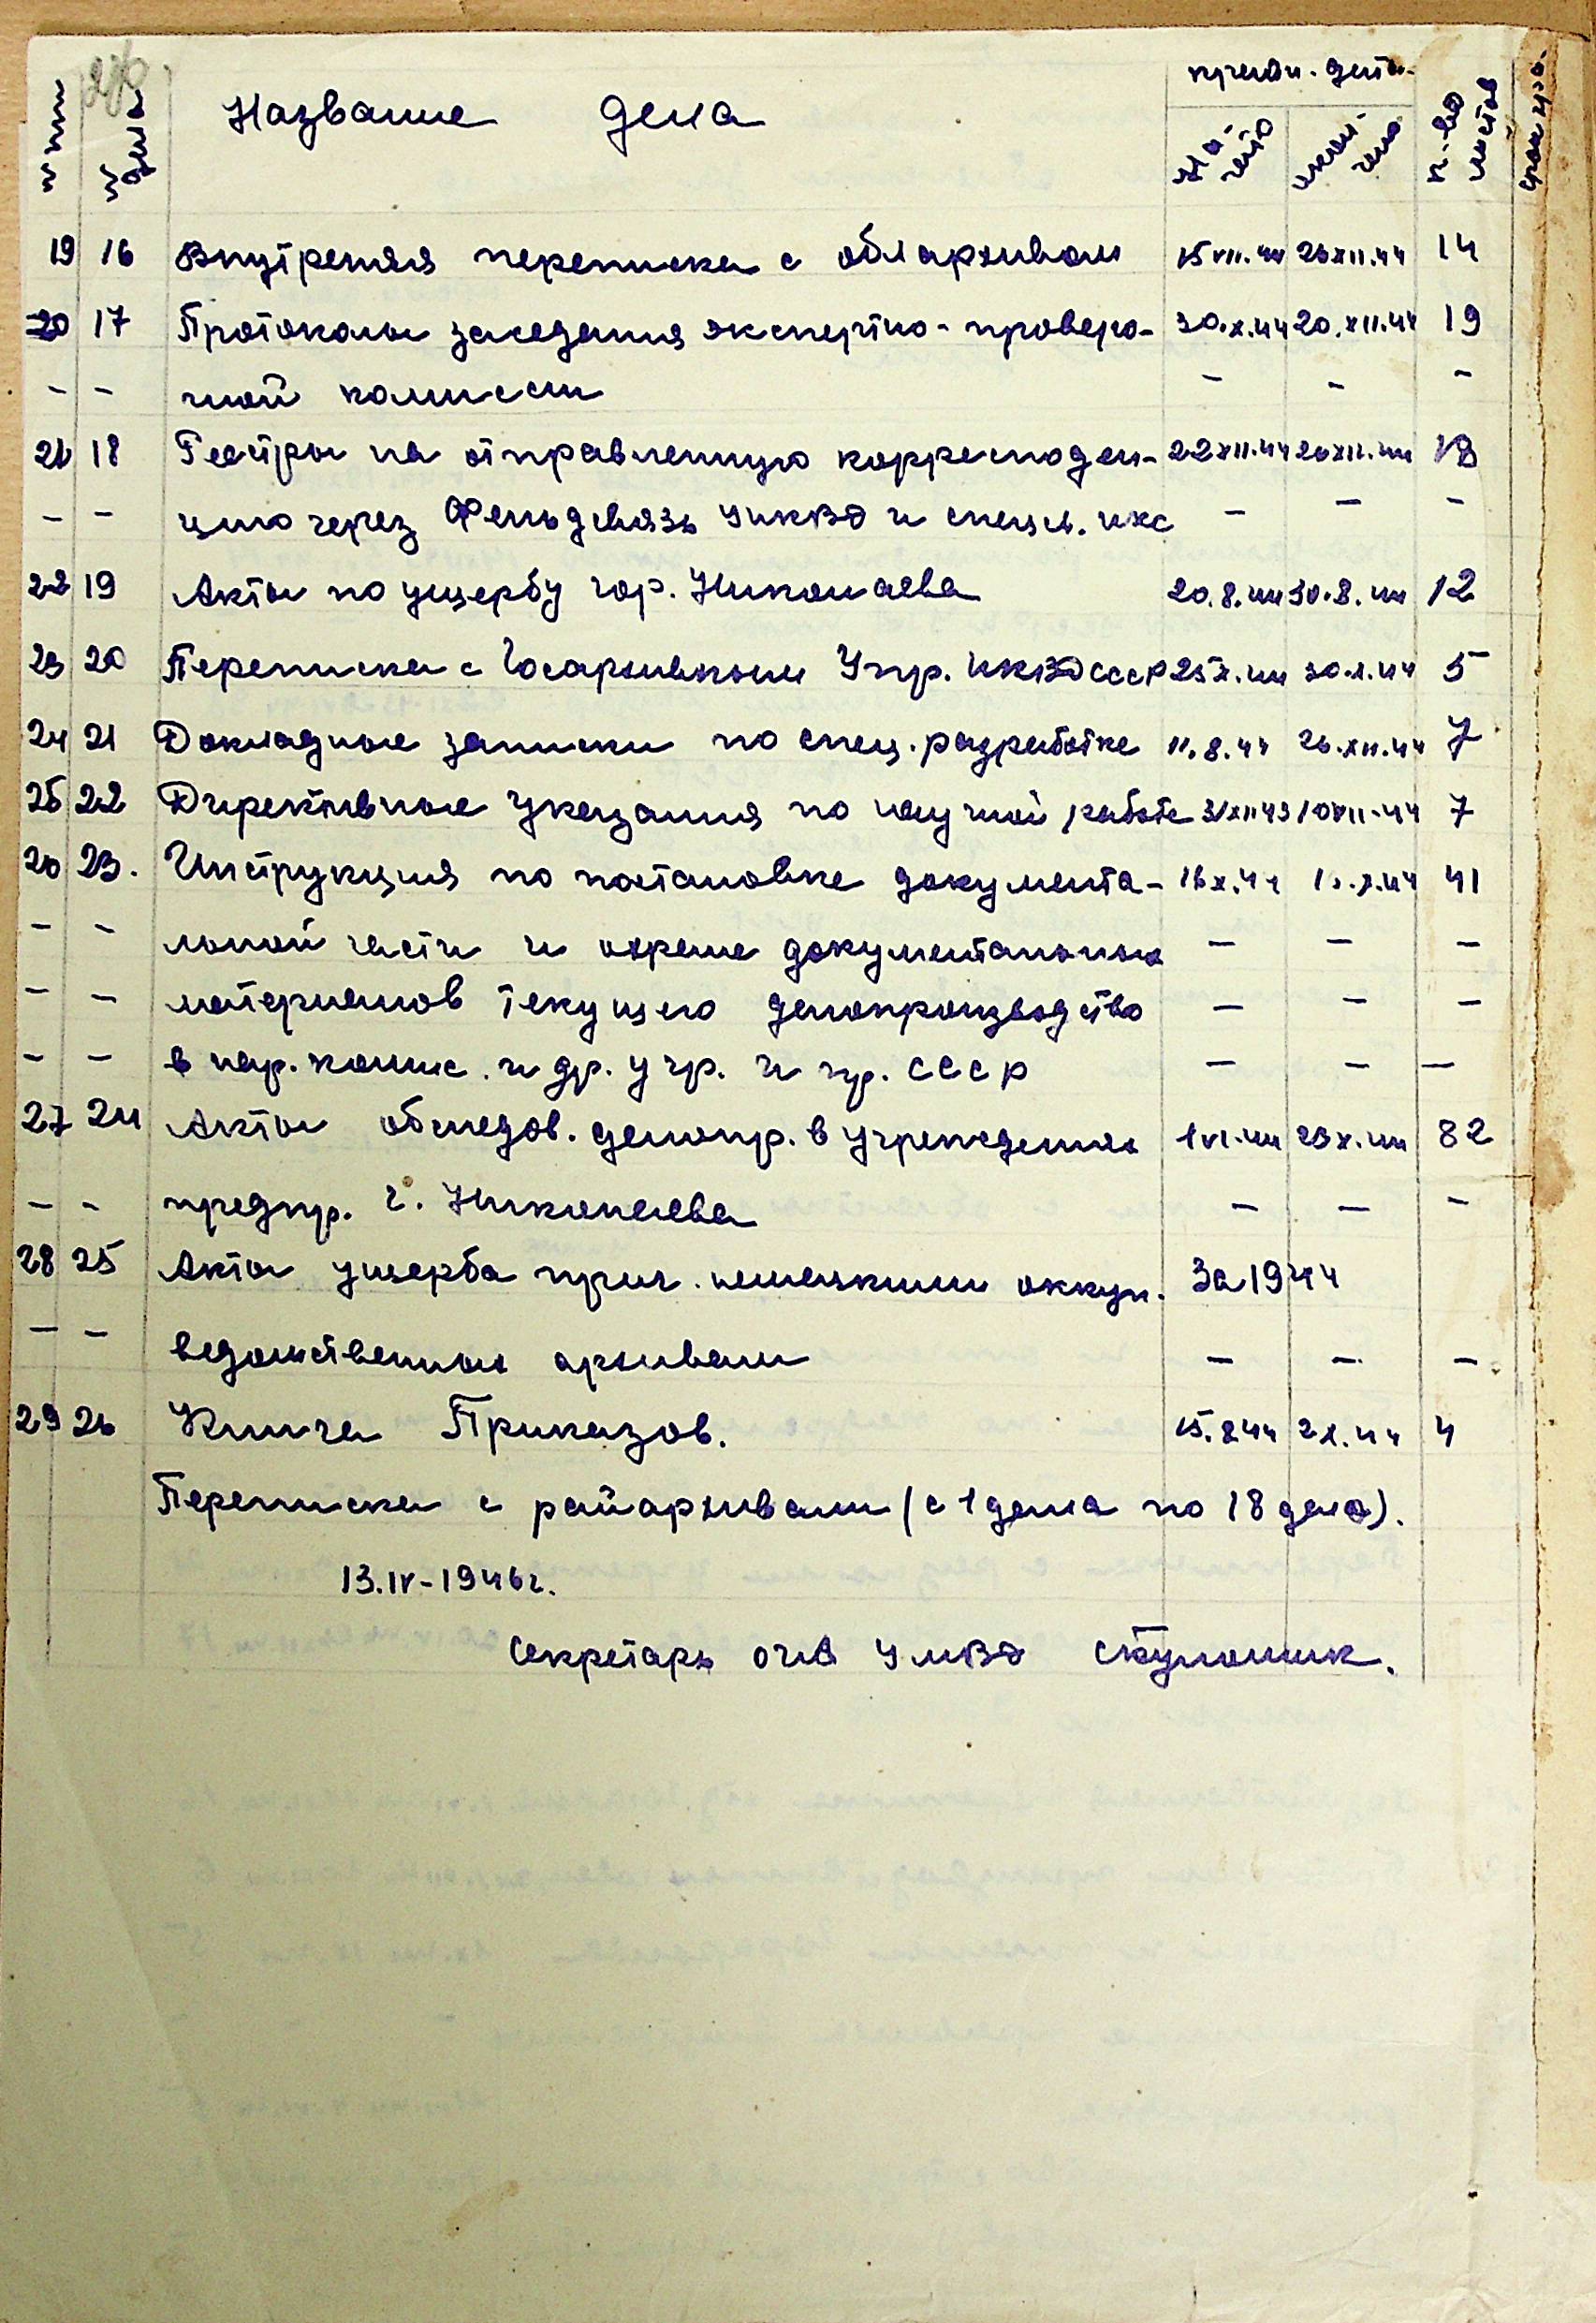 № п/п № дела Название дела крайн. даты к-во листов срок хра.
на-чато оконч-чено
19 16 Внутреняя переписка с облархивом 15 VII.44 26 XII.44 14
20 17 Протоколы заседания экспертно-провероч- 30.X.44 20.XII.44 19
– – ной комиссии – – –
21 18 Реестры на отправленную корресподен- 22 XII.44 26 XII.44 18
– – цию через Фельдсвязь УНКВД и спецсв. НКС – – –
22 19 Акты по ущербу гор. Николаева 20.8.44 30.8.44 12
23 20 Переписка с Госархивным Упр. НКВД СССР 25 X.44 30.X.44 5
24 21 Докладные записки по спец.разработке 11.8.44 26.XII.44 7
25 22 Директивные указания по научной работе 31 XII 43 10 VII-44 7
26 23. Инструкция по постановке документа- 16 X.44 16.X.44 41
– – льной части и охране документальных – – –
– – материалов текущего делопроизводства – – –
– – в нар.комис. и др. учр. и пр. СССР – – –
27 24 Акты обследов. делопр. в учреждениях 1 VI.44 23 X.44 82
– – предпр. г. Николаева – – –
28 25 Акты ущерба прич. немецкими оккуп. За 1944
– – ведомственных архивам – – –
29 26 Книга Приказов. 15.8.44 2 X.44 4
Переписка с райархивами (с 1 дела по 18 дело).
13.IV-1946г.
Секретарь ОГИА УМВД